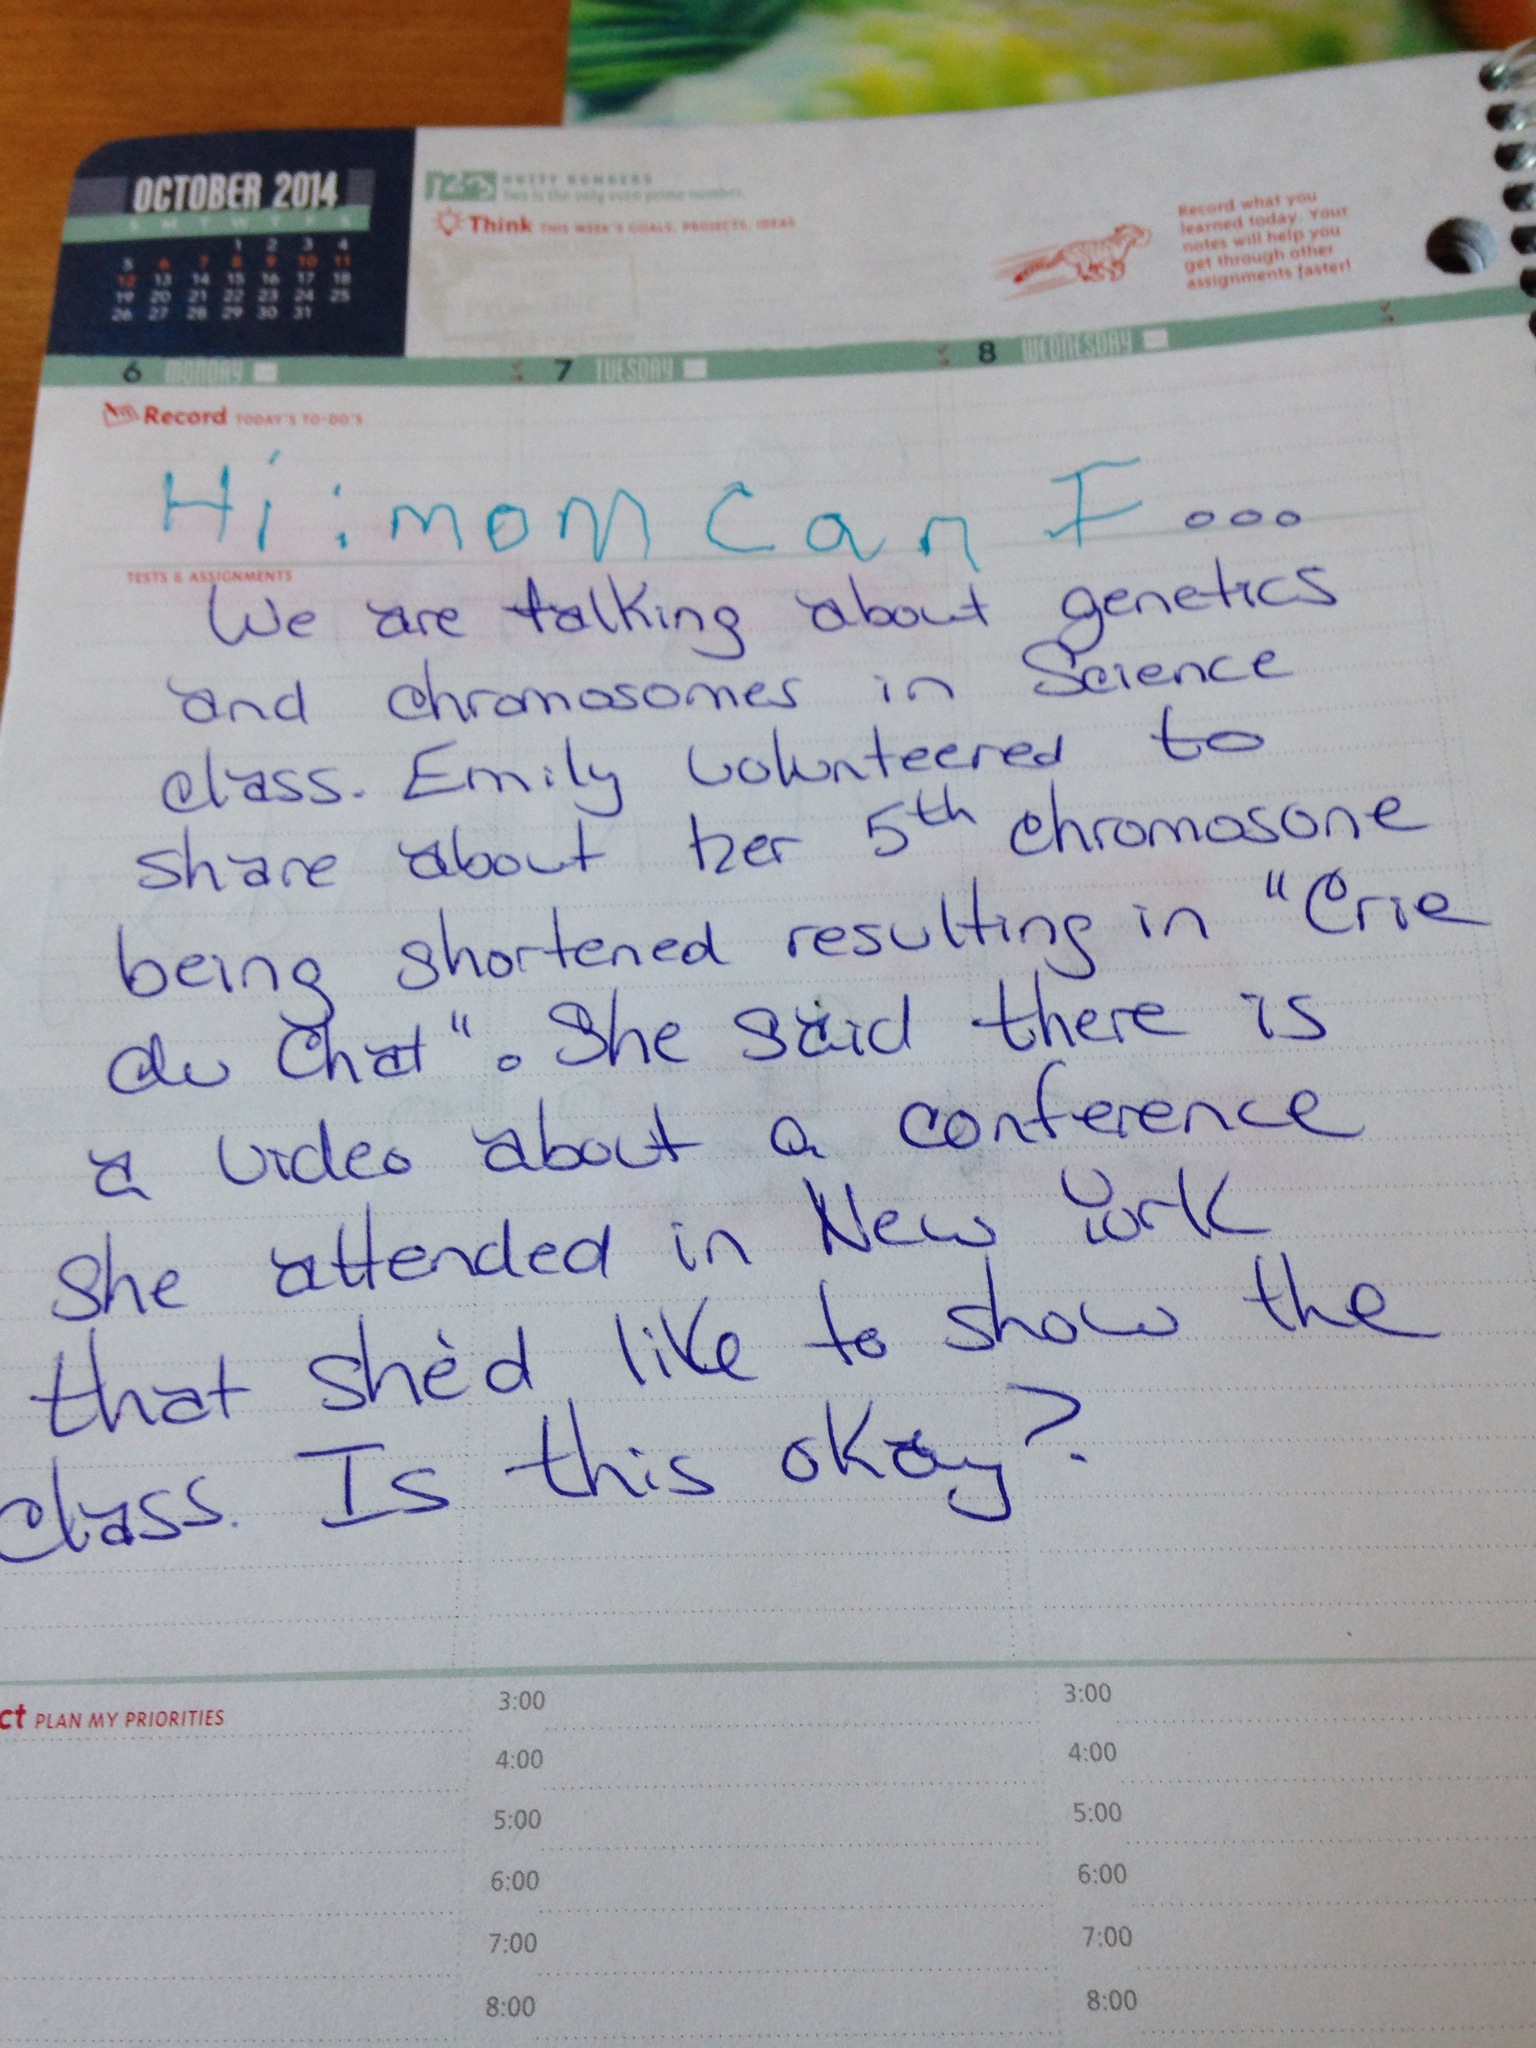 OCTOBER 2014
S M T W T F S
1 2 3 4
5 6 7 8 9 10 11
12 13 14 15 16 17 18
19 20 21 22 23 24 25
26 27 28 29 30 31
NUTTY NUMBERS
Two is the only even prime number.
Think THIS WEEK'S GOALS, PROJECTS, IDEAS
Record what you
learned today. Your
notes will help you
get through other
assignments faster!
6 MONDAY 7 TUESDAY 8 WEDNESDAY
Record TODAY'S TO-DO'S
Hi : mom Can I...
TESTS & ASSIGNMENTS
We are talking about genetics
and chromosomes in Science
class. Emily volunteered to
share about her 5th chromosone
being shortened resulting in "Crie
du Chat". She said there is
a video about a conference
she attended in New York
that she'd like to show the
class. Is this okay?
ct PLAN MY PRIORITIES
3:00 3:00
4:00 4:00
5:00 5:00
6:00 6:00
7:00 7:00
8:00 8:00